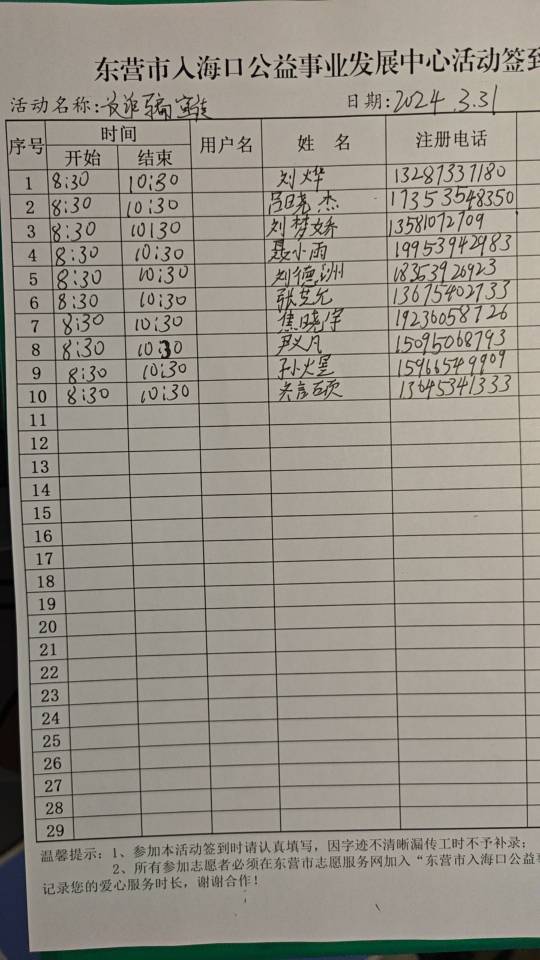 东营市入海口公益事业发展中心活动签到
活动名称: 反诈骗宣传 日期: 2024.3.31
序号 时间 用户名 姓名 注册电话
开始 结束
1 8:30 10:30 刘烨 13287337180
2 8:30 10:30 吕晓杰 17353548350
3 8:30 10:30 刘梦娇 13581072709
4 8:30 10:30 聂小雨 19953942983
5 8:30 10:30 刘德洲 18353926923
6 8:30 10:30 张芝允 13675402733
7 8:30 10:30 焦晓宇 19236058726
8 8:30 10:30 尹义凡 15095068793
9 8:30 10:30 孙火星 15966549909
10 8:30 10:30 13645341333
11
12
13
14
15
16
17
18
19
20
21
22
23
24
25
26
27
28
29
温馨提示：1、参加本活动签到时请认真填写，因字迹不清晰漏传工时不予补录；
2、所有参加志愿者必须在东营市志愿服务网加入“东营市入海口公益事
记录您的爱心服务时长，谢谢合作！